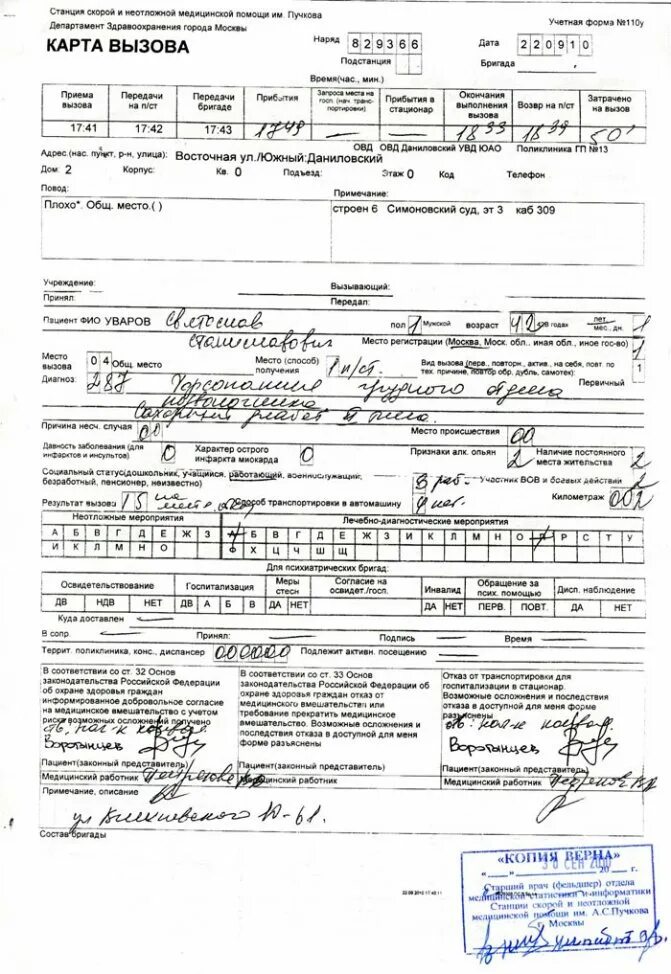 Станция скорой и неотложной медицинской помощи им. Пучкова
Департамент Здравоохранения города Москвы
Учетная форма №110у
КАРТА ВЫЗОВА
Наряд 829366
Дата 220910
Подстанция
Бригада
Время(час., мин.)
Приема вызова
Передачи на п/ст
Передачи бригаде
Прибытия
Запроса места на госп. (нач. транспортировки)
Прибытия в стационар
Окончания выполнения вызова
Возвр на п/ст
Затрачено на вызов
17:41 17:42 17:43 1749 — — 1833 1839 50'
ОВД ОВД Даниловский УВД ЮАО Поликлиника ГП №13
Адрес.(нас. пункт, р-н, улица): Восточная ул./Южный:Даниловский
Дом: 2 Корпус: Кв. 0 Подъезд: Этаж 0 Код Телефон
Повод: Примечание:
Плохо*. Общ. место.( ) строен 6 Симоновский суд, эт 3 каб 309
Учреждение: Вызывающий:
Принял: Передал:
Пациент ФИО УВАРОВ Святослав пол 1 Мужской возраст 42 годах лет мес., дн. 1
Станиславович Место регистрации (Москва, Моск. обл., иная обл., иное гос-во) 1
Место вызова 04 Общ. место Место (способ) получения 1 п/ст. Вид вызова (перв., повторн., актив., на себя, повт. по тех. причине, повтор обр. дубль, самотек): Первичный 1
Диагноз: 287 Торсопатия грудного отдела
позвоночника
Сахарный диабет II типа.
Причина несч. случая 00 Место происшествия 00
Давность заболевания (для инфарктов и инсультов) 0 Характер острого инфаркта миокарда 0 Признаки алк. опьян 2 Наличие постоянного места жительства 2
Социальный статус(дошкольник, учащийся, работающий, военнослужащий, безработный, пенсионер, неизвестно) 3 раб. Участник ВОВ и боевых действий 2
Результат вызова 15 на месте Способ транспортировки в автомашину Километраж 002
Неотложные мероприятия Лечебно-диагностические мероприятия
А Б В Г Д Е Ж З А Б В Г Д Е Ж З И К Л М Н О П Р С Т У
И К Л М Н О Ф Х Ц Ч Ш Щ
Для психиатрических бригад:
Освидетельствование Госпитализация Меры стесн Согласие на освидет./госп. Инвалид Обращение за псих. помощью Дисп. наблюдение
ДВ НДВ НЕТ ДВ А Б В ДА НЕТ ДА НЕТ ПЕРВ. ПОВТ. ДА НЕТ
Куда доставлен
В сопр. Принял: Подпись Время
Террит. поликлиника, конс., диспансер 000000 Подлежит активн. посещению
В соответствии со ст. 32 Основ законодательства Российской Федерации об охране здоровья граждан информированное добровольное согласие на медицинское вмешательство с учетом риска возможных осложнений получено
Воротынцев
Пациент(законный представитель)
Медицинский работник
В соответствии со ст. 33 Основ законодательства Российской Федерации об охране здоровья граждан отказ от медицинского вмешательства или требование прекратить медицинское вмешательство. Возможные осложнения и последствия отказа в доступной для меня форме разъяснены
Пациент(законный представитель)
Медицинский работник
Отказ от транспортировки для госпитализации в стационар. Возможные осложнения и последствия отказа в доступной для меня форме разъяснены
Воротынцев
Пациент(законный представитель)
Медицинский работник
Примечание, описание
ул 10-61.
Состав бригады
«КОПИЯ ВЕРНА»
30 СЕН 20 г.
Старший врач (фельдшер) отдела
медицинской статистики и информатики
Станции скорой и неотложной
медицинской помощи им. А.С.Пучкова
г. Москвы